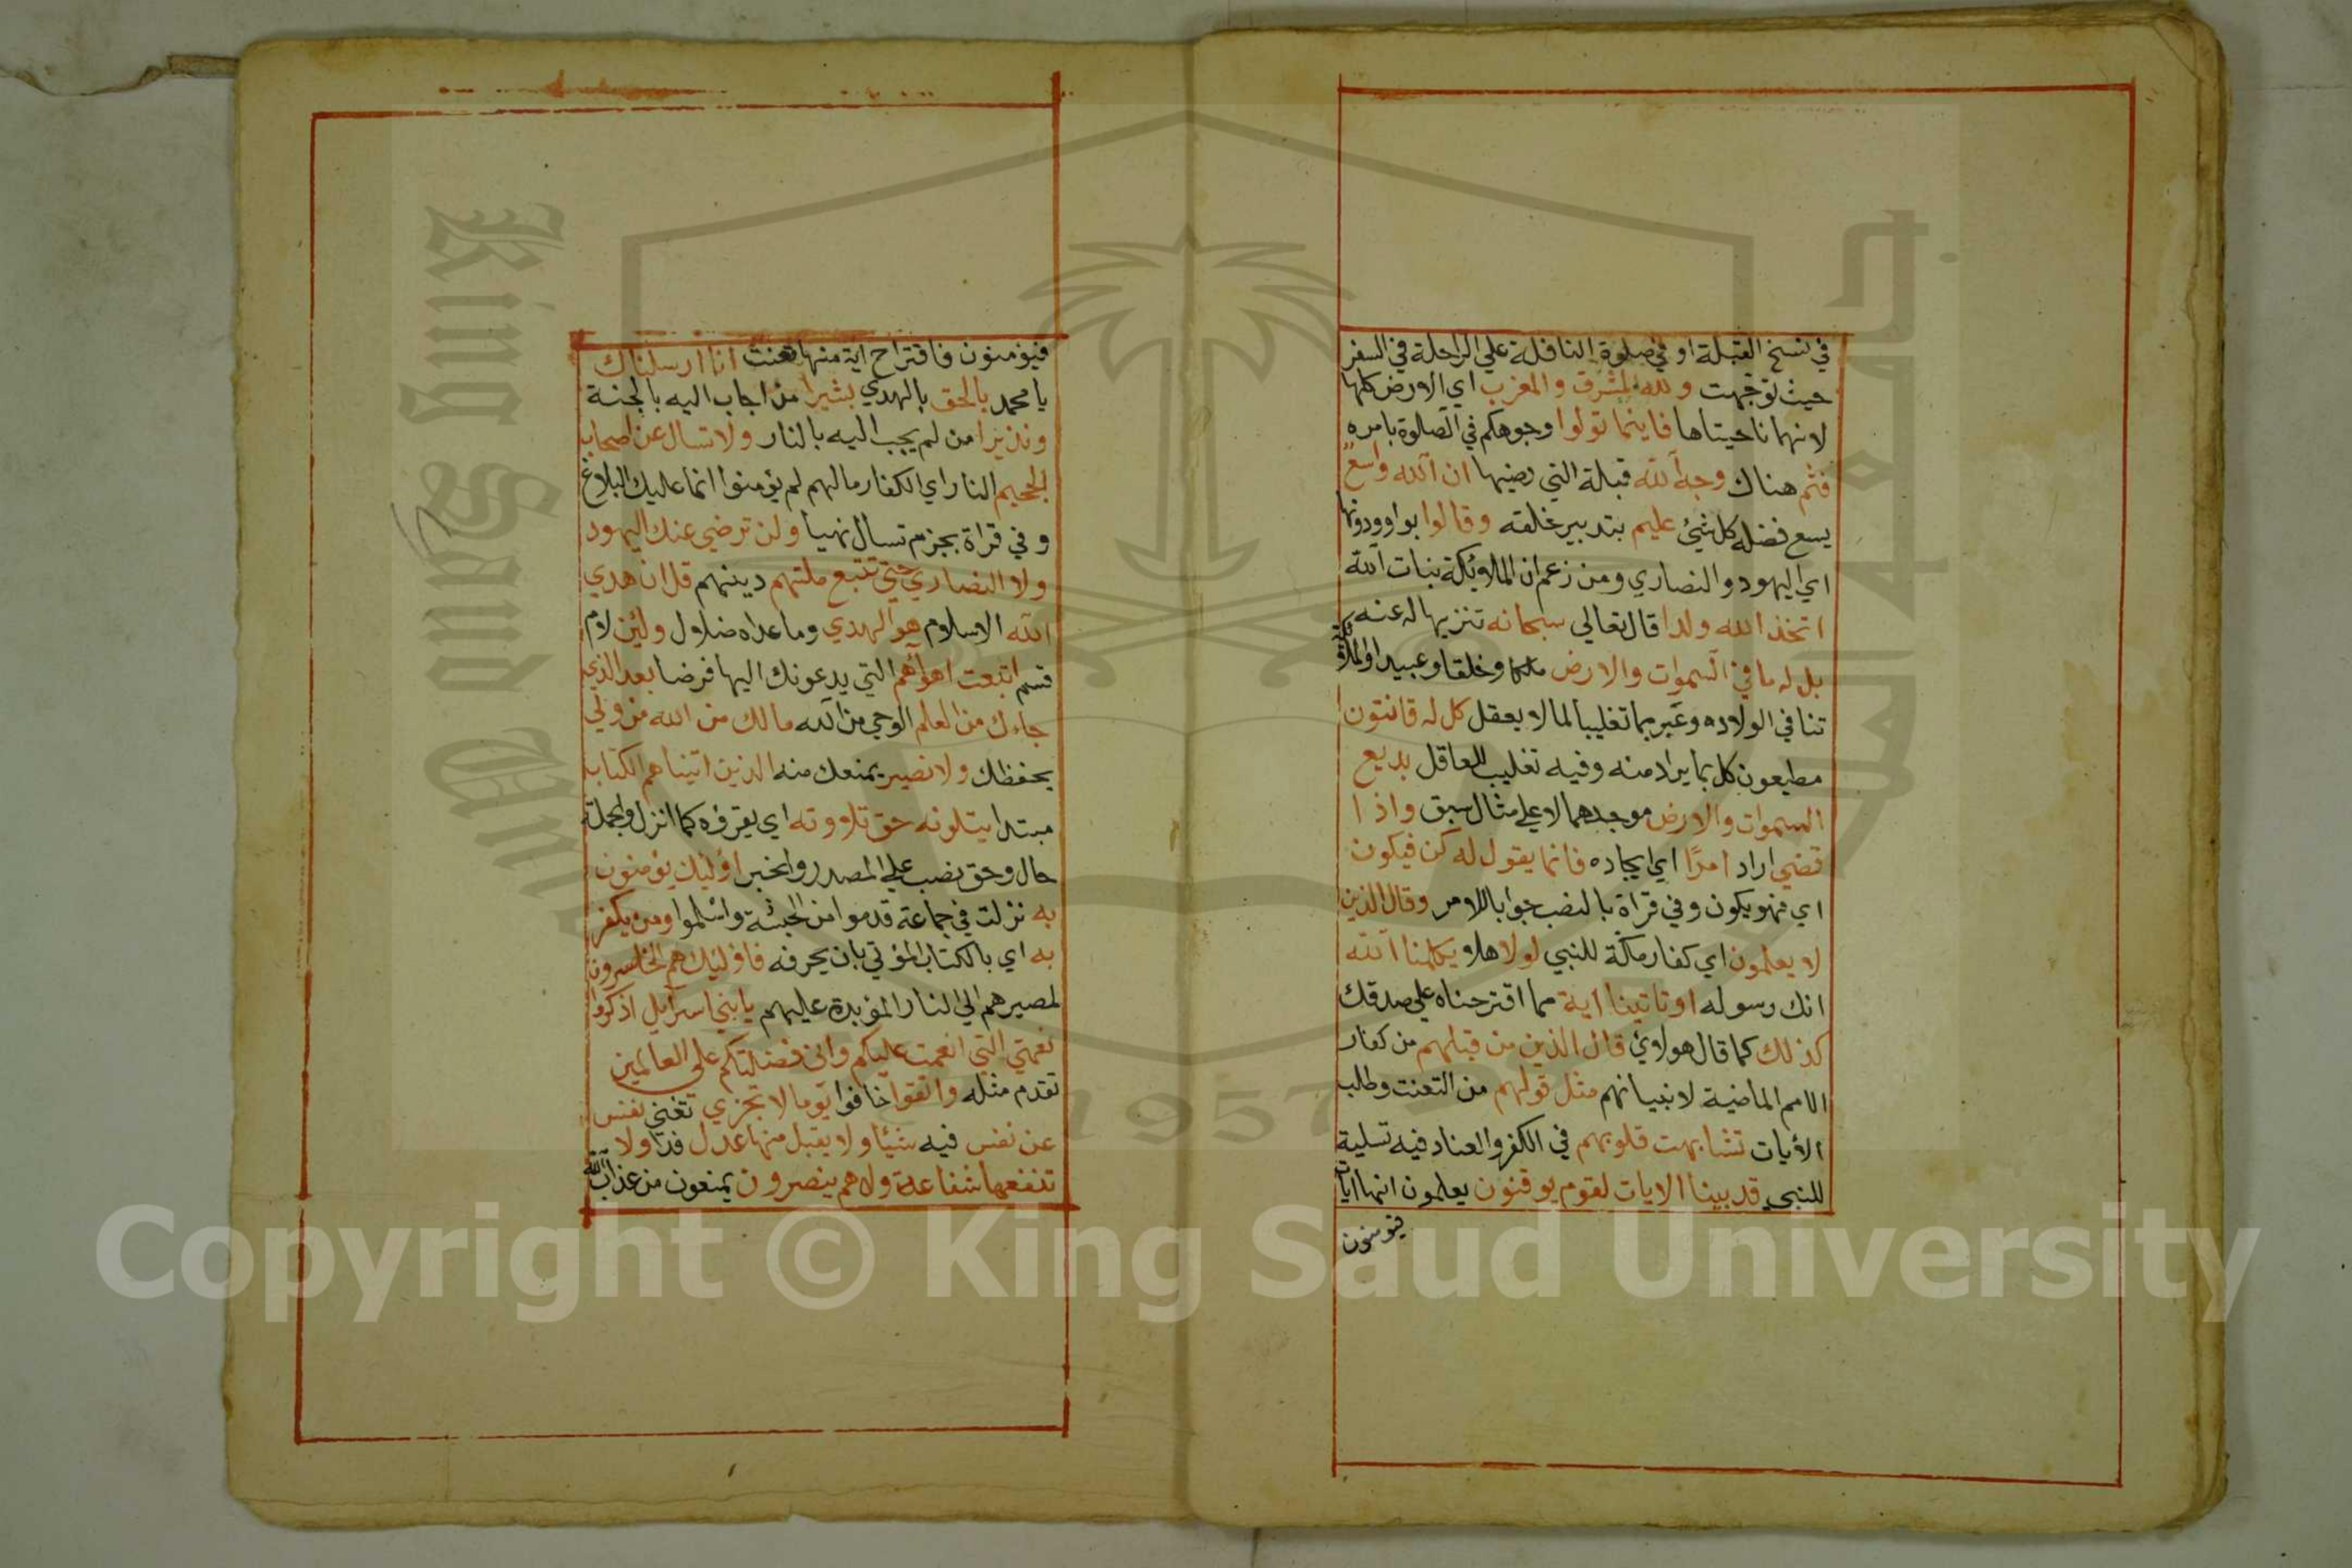 في نسخ القبلة او في صلوة النافلة علي الراحلة في السفر
حيث توجهت ولله المشرق والمغرب اي الارض كلها
لانهما ناحيتاها فاينما تولوا وجوهكم في الصلوة بامره
فثم هناك وجه الله قبلة التي رضيها ان الله واسع
يسع فضله كل شيئ عليم بتدبير خلقه وقالوا بواو ودونها
اي اليهود والنصاري ومن زعم ان الملايكة بنات الله
اتخذ الله ولدا قال تعالي سبحانه تنزيها له عنه
بل له ما في السموات والارض ملكا وخلقا وعبيدا والملكية
تنافي الولاده وعبر بما تغليبا لما لا يعقل كل له قانتون
مطيعون كل بما يراد منه وفيه تغليب للعاقل بديع
السموات والارض موجدهما لا علي مثال سبق واذا
قضي اراد امرًا اي ايجاده فانما يقول له كن فيكون
اي فهو يكون وفي قراة بالنصب جوابا للامر وقال الذين
لا يعلمون اي كفار مكة للنبي لولا هلا يكلمنا الله
انك رسوله او تاتينا اية مما اقترحناه علي صدقك
كذلك كما قال هولاوئ قال الذين من قبلهم من كفار
الامم الماضية لانبيانهم مثل قولهم من التعنت وطلب
الأيات تشابهت قلوبهم في الكفر والعناد فيه تسلية
للنبي قد بينا الايات لقوم يوقنون يعلمون انها ايات
فيومنون
فيؤمنون فاقتراح اية منها تعنت انا ارسلناك
يا محمد بالحق بالهدي بشيرا من اجاب اليه بالجنة
ونذيرا من لم يجب اليه بالنار ولا تسال عن اصحاب
الجحيم النار اي الكفار مالهم لم يؤمنوا انما عليك البلاغ
وفي قراة بجزم تسال نهيا ولن ترضي عنك اليهود
ولا النصاري حتي تتبع ملتهم دينهم قل ان هدي
الله الاسلام هو الهدي وما عداه ضلال ولئن لام
قسم اتبعت اهوأهم التي يدعونك اليها فرضا بعد الذي
جاءك من العلم الوحي من الله مالك من الله من ولي
يحفظك ولا نصير يمنعك منه الذين اتيناهم الكتاب
مبتدا يتلونه حق تلاوته اي يقرؤه كما انزل والجملة
حال وحق نصب علي المصدر والخبر اوليك يؤمنون
به نزلت في جماعة قدموا من الحبشة واسلموا ومن يكفر
به اي بالكتاب المؤتي بان يحرفه فاوليك هم الخاسرون
لمصيرهم الي النار المؤبدة عليهم يا بني اسرايل اذكروا
نعمتي التي انعمت عليكم واني فضلتكم علي العالمين
تقدم مثله واتقوا خافوا يوما لا تجزي تغني نفس
عن نفس فيه شيئا ولا يقبل منها عدل فدا ولا
تنفعها شفاعة ولا هم ينصرون يمنعون من عذاب الله
King Saud University
1957
Copyright © King Saud University